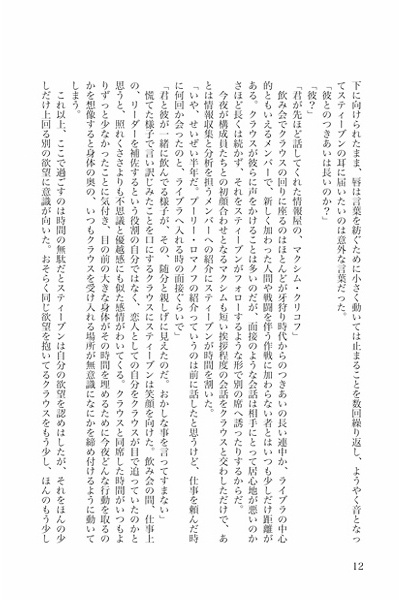 下に向けられたまま、唇は言葉を紡ぐために小さく動いては止まることを数回繰り返し、ようやく音となっ
てスティーブンの耳に届いたのは意外な言葉だった。
「彼とのつきあいは長いのか？」
「彼？」
「君が先ほど話してくれた情報屋の、マクシム・クリコフ」
飲み会でクラウスの回りに座るのはほとんどが牙狩り時代からのつきあいの長い連中か、ライブラの中心
的ともいえるメンバーで、新しく加わった人間や戦闘を伴う作戦に加わらない者とはいつも少しだけ距離が
ある。クラウスが彼らに声をかけることは多いのだが、面接のような会話は相手にとって居心地が悪いのか
さほど長くは続かず、それをスティーブンがフォローするような形で別の席へ誘ったりするからだ。
今夜が構成員たちとの初顔合わせとなるマクシムも短い挨拶程度の会話をクラウスと交わしただけで、あ
とは情報収集と分析を担うメンバーへの紹介にスティーブンが時間を割いた。
「いや、せいぜい半年だ。ブーリー・ロマノフの紹介っていうのは前に話したと思うけど、仕事を頼んだ時
に何回か会ったのと、ライブラへ入れる時の面接ぐらいで」
「君と彼が一緒に飲んでる様子が、その、随分と親しげに見えたのだ。おかしな事を言ってすまない」
慌てた様子で言い訳じみたことを口にするクラウスにスティーブンは笑顔を向けた。飲み会の間、仕事上
の、リーダーを補佐するという役割の自分ではなく、恋人としての自分をクラウスが目で追っていたのかと
思うと、照れくささよりも不思議と優越感にも似た感情がわいてくる。クラウスと同席した時間がいつもよ
りずっと少なかったことに気付き、目の前の大きな身体がその時間を埋めるために今夜どんな行動を取るの
かを想像すると身体の奥の、いつもクラウスを受け入れる場所が無意識になにかを締め付けるように動いて
しまう。
これ以上、ここで過ごすのは時間の無駄だとスティーブンは自分の欲望を認めはしたが、それをほんの少
しだけ上回る別の欲望に意識が向いた。おそらく同じ欲望を抱いてるクラウスをもう少し、ほんのもう少し
12